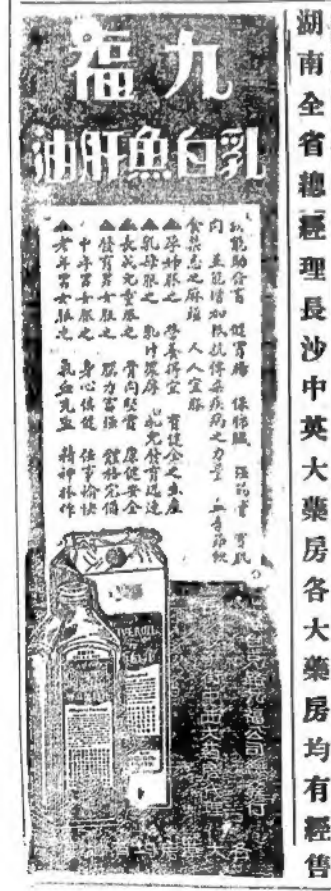 湖南全省總經理長沙中英大藥房各大藥房均有經售
九福
乳白魚肝油
功能助信百 健胃腸 保肺臟 强筋骨 育肌
肉 並能增加抵抗傳染疾病之力量 且無節飲
食禁忌之麻煩 人人宜服
▲孕婦服之 營養得宜 有健全之生產
▲乳母服之 乳汁濃厚 乳兒發育迅速
▲長成兒童服之 骨肉堅實 康健安全
▲發育男女服之 腦力富强 體格完備
▲中年男女服之 身心俱健 任事愉快
▲老年男女服之 氣血充盈 精神振作
九福公司 發行
中英大藥房 代理
各大藥房均有